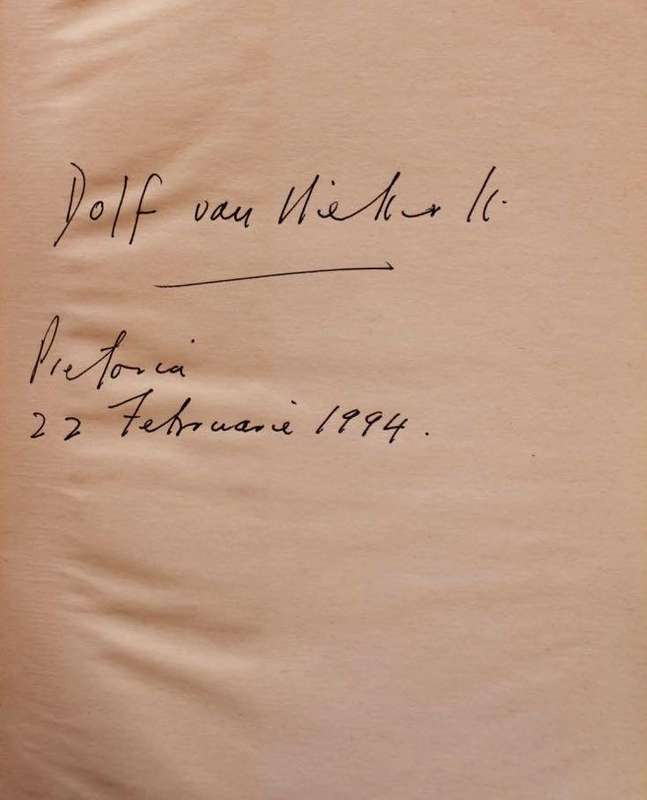 Dolf van Niekerk.
Pretoria
22 Februarie 1994.